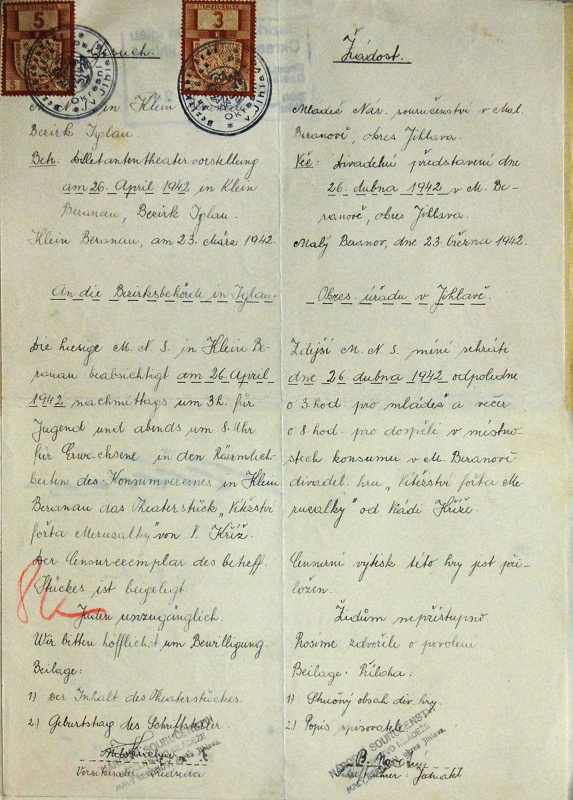 5
K
3
K
Gesuch.
M. N. S. in Klein
Bezirk Iglau.
Betr. Dilletantentheatervorstellung
am 26. April 1942 in Klein
Beranau, Bezirk Iglau.
Klein Beranau, am 23. März 1942.
An die Bezirksbehörde in Iglau.
Die hiesige M. N. S. in Klein Be-
ranau beabsichtigt am 26. April
1942 nachmittags um 3h. für
Jugend und abends um 8. Uhr
für Erwachsene in den Räumlich-
keiten des Konsumvereines in Klein
Beranau das Theaterstück "Vítězství
fořta Merusalky" von V. Kříž.
Der Censurexemplar des betreff.
Stückes ist beigelegt.
8K
Juden unzugänglich.
Wir bitten höfflichst um Bewilligung.
Beilage:
1) Der Inhalt des Theaterstückes.
2) Geburtstag des Schriftsteller.
NÁRODNÍ SOURUČENSTVÍ
MALÝ BERANOV, okres Jihlava
Žádost.
Mládež Nár. souručenství v Mal.
Beranově, okres Jihlava.
Věc: Divadelní představení dne
26. dubna 1942 v M. Be-
ranově, okres Jihlava.
Malý Beranov, dne 23. března 1942.
Okres. úřadu v Jihlavě.
Zdejší M. N. S. míní sehráti
dne 26. dubna 1942 odpoledne
o 3. hod. pro mládež a večer
o 8. hod. pro dospělé v místno-
stech konsumu v M. Beranově
divadel. hru "Vítězství fořta Me-
ruzalky" od Vládi Kříže
Censurní výtisk této hry jest při-
ložen.
Židům nepřístupno.
Prosíme zdvořile o povolení
Beilage: Příloha:
1) Stručný obsah div. hry.
2) Popis spisovatele
NÁRODNÍ SOURUČENSTVÍ
MALÝ BERANOV, okres Jihlava
Schriftführer: Jednatel